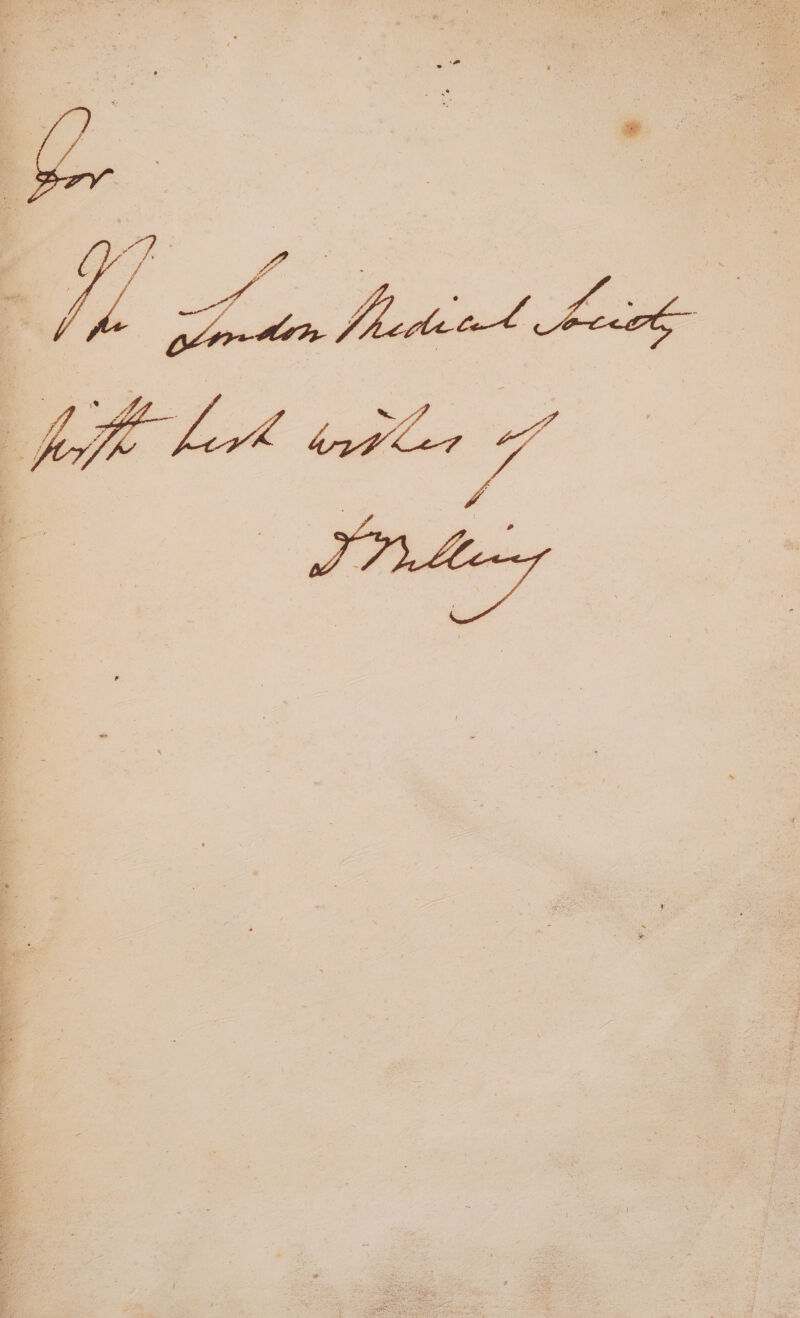 For
The London Medical Society
With best wishes of
Dr Billing